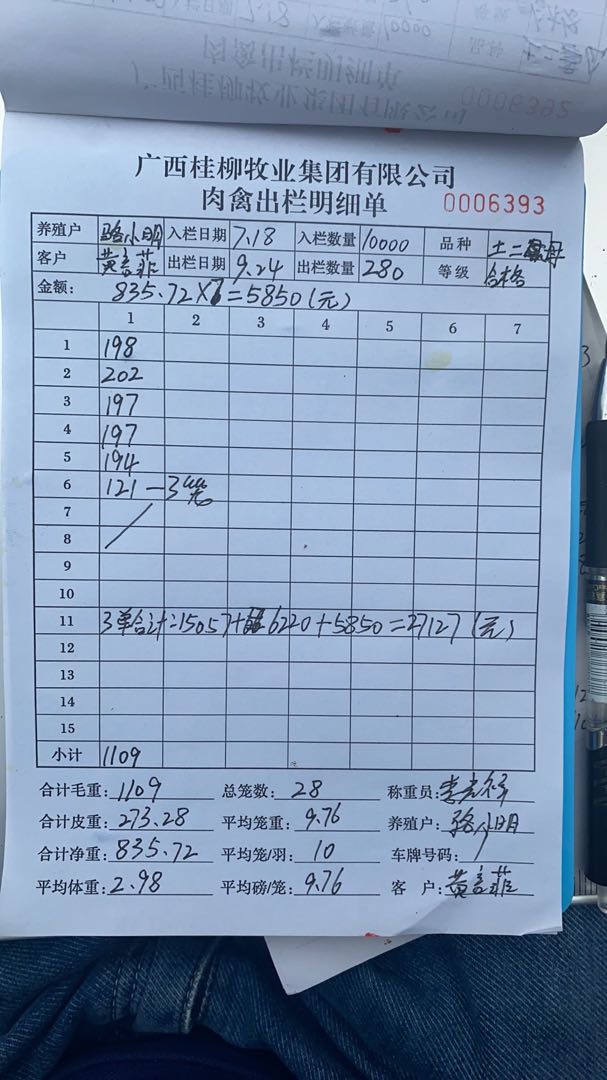 0006392
广西桂柳牧业集团有限公司
肉禽出栏明细单 0006393
养殖户 骆小明 入栏日期 7.18 入栏数量 10000 品种 土二
客户 黄言菲 出栏日期 9.24 出栏数量 280 等级 合格
金额: 835.72×7=5850(元)
1 2 3 4 5 6 7
1 198
2 202
3 197
4 197
5 194
6 121-3
7
8
9
10
11 3单合计=15057+6220+5850=27127(元)
12
13
14
15
小计 1109
合计毛重: 1109 总笼数: 28 称重员:
合计皮重: 273.28 平均笼重: 9.76 养殖户: 骆小明
合计净重: 835.72 平均笼/羽: 10 车牌号码: /
平均体重: 2.98 平均磅/笼: 9.76 客 户: 黄言菲